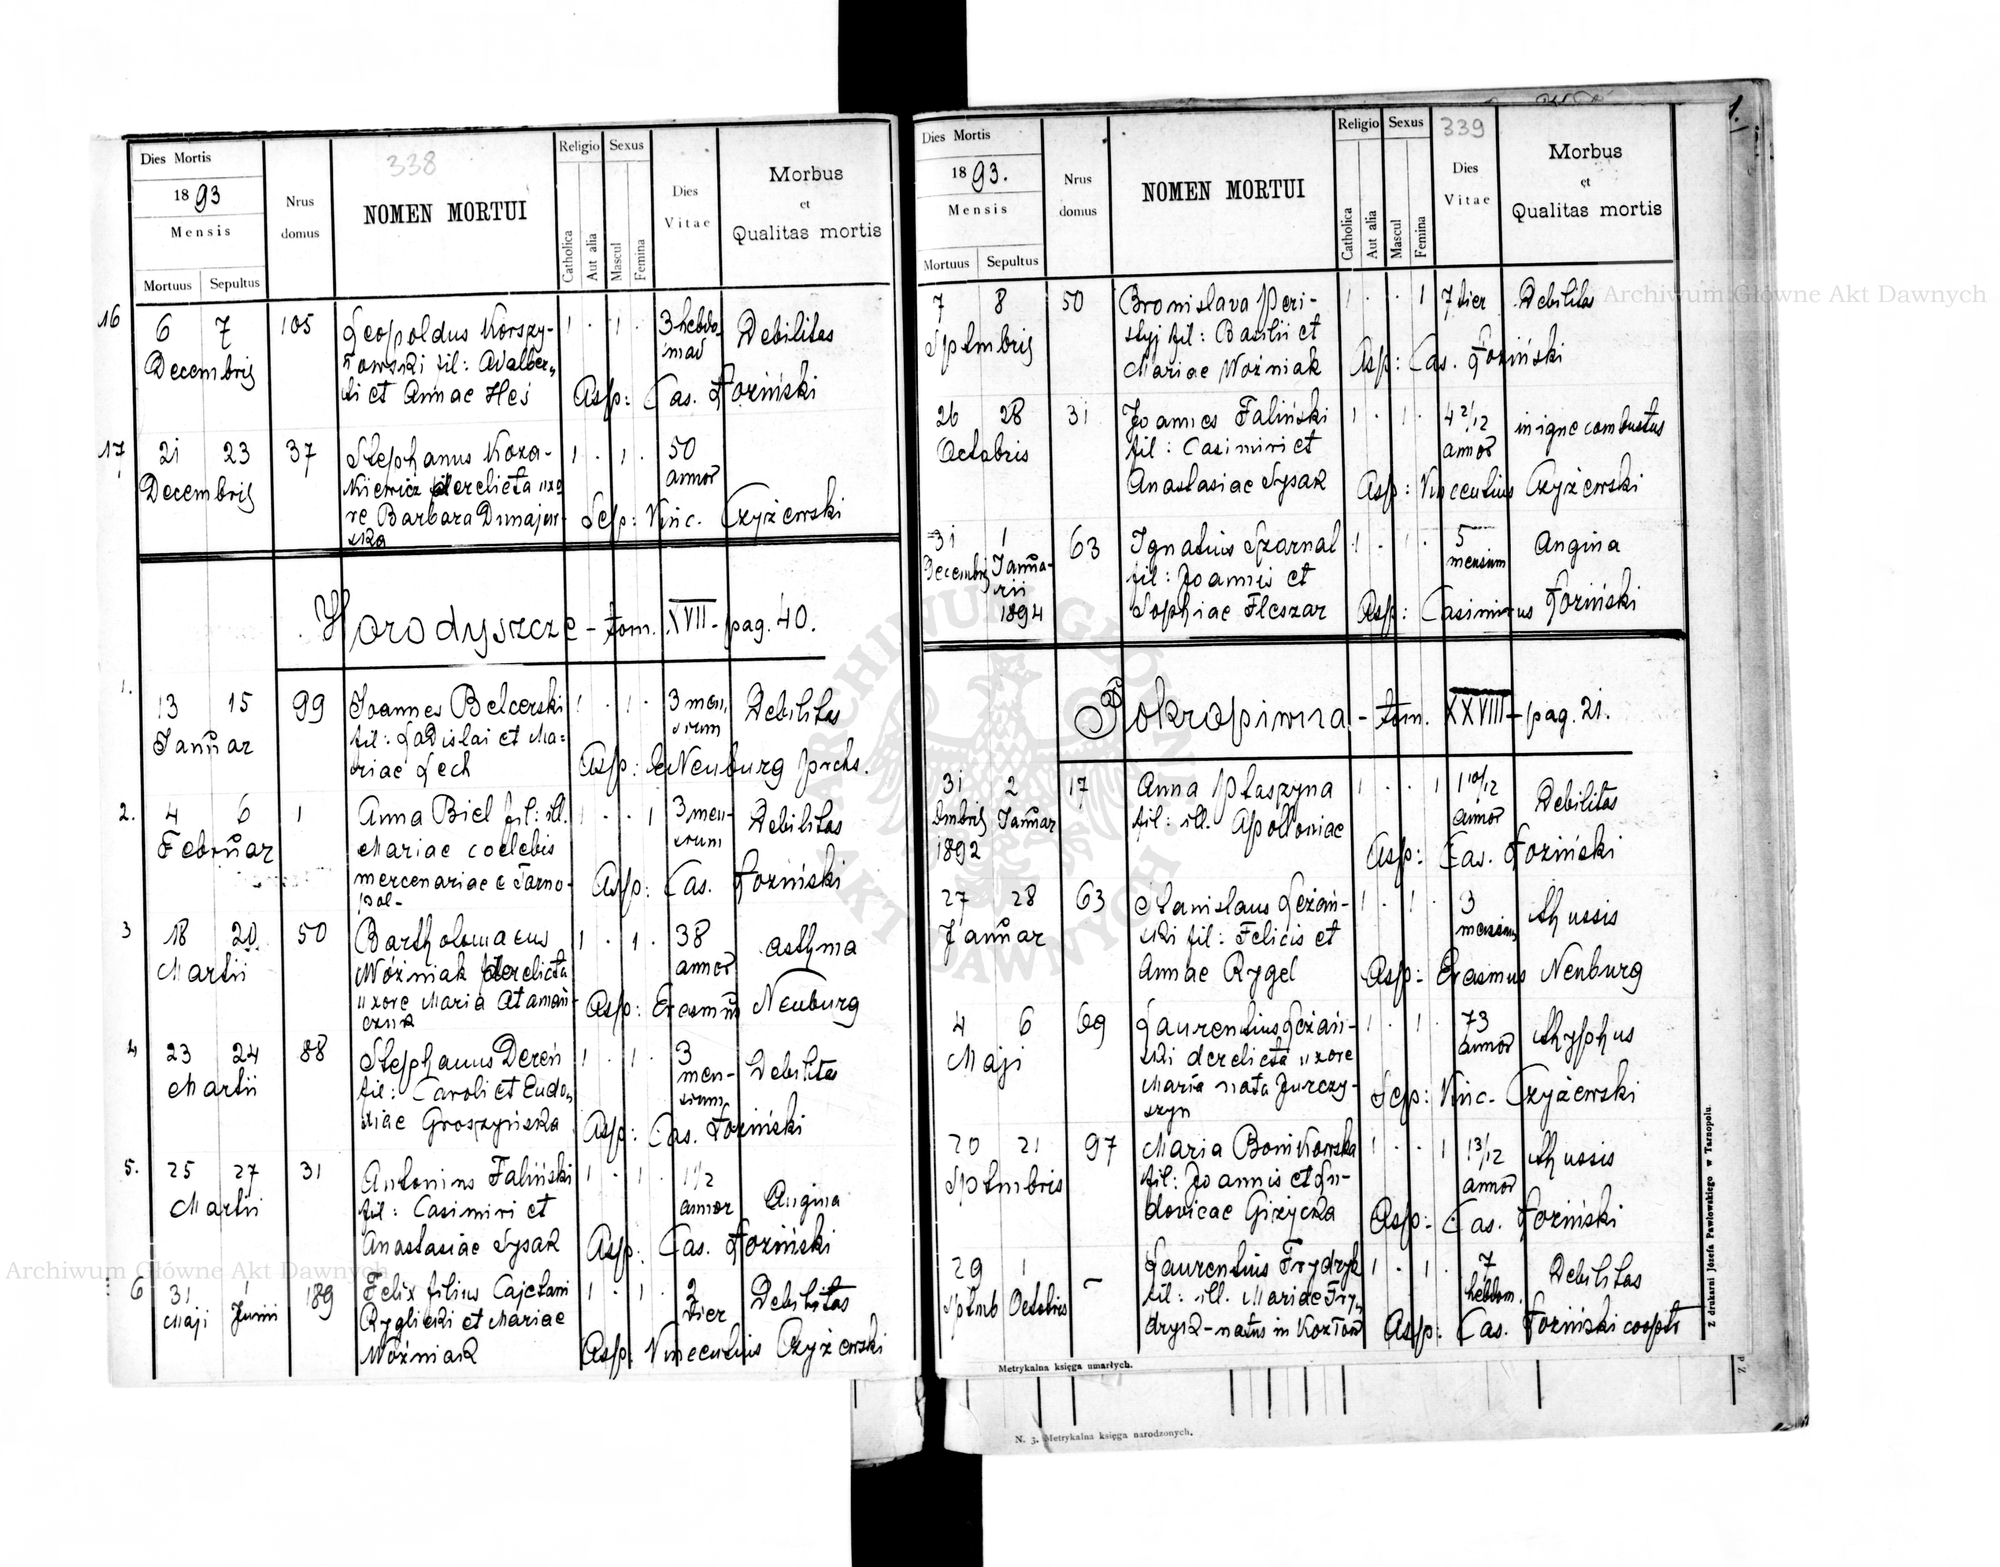 338
Dies Mortis
1893
Mensis
Mortuus Sepultus
Nrus domus
NOMEN MORTUI
Religio
Catholica
Aut alia
Sexus
Mascul
Femina
Dies Vitae
Morbus
et
Qualitas mortis
16 6 7 105 Leopoldus Korszy- 1 . 1 . 3 hebdo- Debilitas
Decembris kowski fil: Adalber- mad
ti et Annae Heś Asp: Cas. Łoziński
17 21 23 37 Stephanus Koza- 1 . 1 . 50
Decembris kiewicz derelicta uxo annor
re Barbara Dunajew- Sep: Vinc. Czyżewski
ska
Horodyszcze - tom. XVII - pag. 40.
1. 13 15 99 Joannes Belcerski 1 . 1 . 3 men- Debilitas
Januar fil: Ladislai et Ma- sium
riae Lech Asp: Neuburg prchs.
2. 4 6 1 Anna Biel fil: ill. 1 . . 1 3 men- Debilitas
Februar Mariae coelebis sium
mercenariae e Tarno- Asp: Cas. Łoziński
pol-
3 18 20 50 Bartholomaeus 1 . 1 . 38 asthma
Martii Woźniak derelicta annor
uxore Maria Atamań- Asp: Erasmus Neuburg
czuk
4 23 24 88 Stephanus Dereń 1 . 1 . 3 Debilitas
Martii fil: Caroli et Eudo- men-
xiae Groszyńska sium
Asp: Cas. Łoziński
5. 25 27 31 Antonius Faliński 1 . 1 . 1 1/2
Martii fil: Casimiri et annor Angina
Anastasiae Sysak Asp: Cas. Łoziński
6 31 1 189 Felix filius Cajetani 1 . 1 . 2 Debilitas
Maji Junii Rygliński et Mariae dier
Woźniak Asp: Vincentius Czyżewski
1.
339
Dies Mortis
1893.
Mensis
Mortuus Sepultus
Nrus domus
NOMEN MORTUI
Religio
Catholica
Aut alia
Sexus
Mascul
Femina
Dies Vitae
Morbus
et
Qualitas mortis
7 8 50 Bronislava Peri- 1 . . 1 7 dier Debilitas
Sptmbris styj fil: Basilii et
Mariae Woźniak Asp: Cas. Łoziński
26 28 31 Joannes Faliński 1 . 1 . 4 2/12 in igne combustus
Octobris fil: Casimiri et annor
Anastasiae Sysak Asp: Vincentius Czyżewski
31 1 63 Ignatius Szarnal 1 . 1 . 5 Angina
Decembris Janua- fil: Joannis et mensium
rii
1894 Sophiae Fleszar Asp: Casimirus Łoziński
Pokropiwna - tom. XXVIII - pag. 21.
31 2 17 Anna Ptaszyna 1 . . 1 1 10/12 Debilitas
Dmbris Januar fil: ill. Apolloniae annor
1892 Asp: Cas. Łoziński
27 28 63 Stanislaus Leżań- 1 . 1 . 3 thussis
Januar ski fil: Felicis et mensium
Annae Rygel Asp: Erasmus Neuburg
4 6 69 Laurentius Leżań- 1 . 1 . 73 thyphus
Maji ski derelicta uxore annor
Maria nata Jurczy- Sep: Vinc. Czyżewski
szyn
20 21 97 Maria Bonikowska 1 . . 1 1 3/12 thussis
Sptmbris fil: Joannis et Lu- annor
dovicae Giżycka Asp: Cas. Łoziński
29 1 - Laurentius Frydryk 1 . 1 . 7 Debilitas
Sptmb Octobris fil: ill. Mariae Fry- hebdom.
dryk - natus in Kozłów Asp: Cas. Łoziński coopts
Metrykalna księga umarłych.
Z drukarni Józefa Pawłowskiego w Tarnopolu.
N. 3. Metrykalna księga narodzonych.
Archiwum Główne Akt Dawnych
Archiwum Główne Akt Dawnych
ARCHIWUM GŁÓWNE AKT DAWNYCH